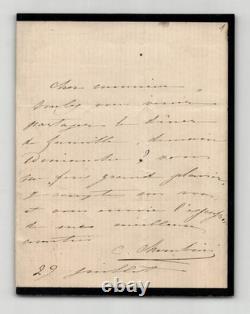 Cher monsieur
voulez vous venir
partager le dîner
de famille, demain
Dimanche ? vous
me fere grand plaisir,
Je compte sur vous
et vous envoie l'expression
de mes meilleurs
29 juillet